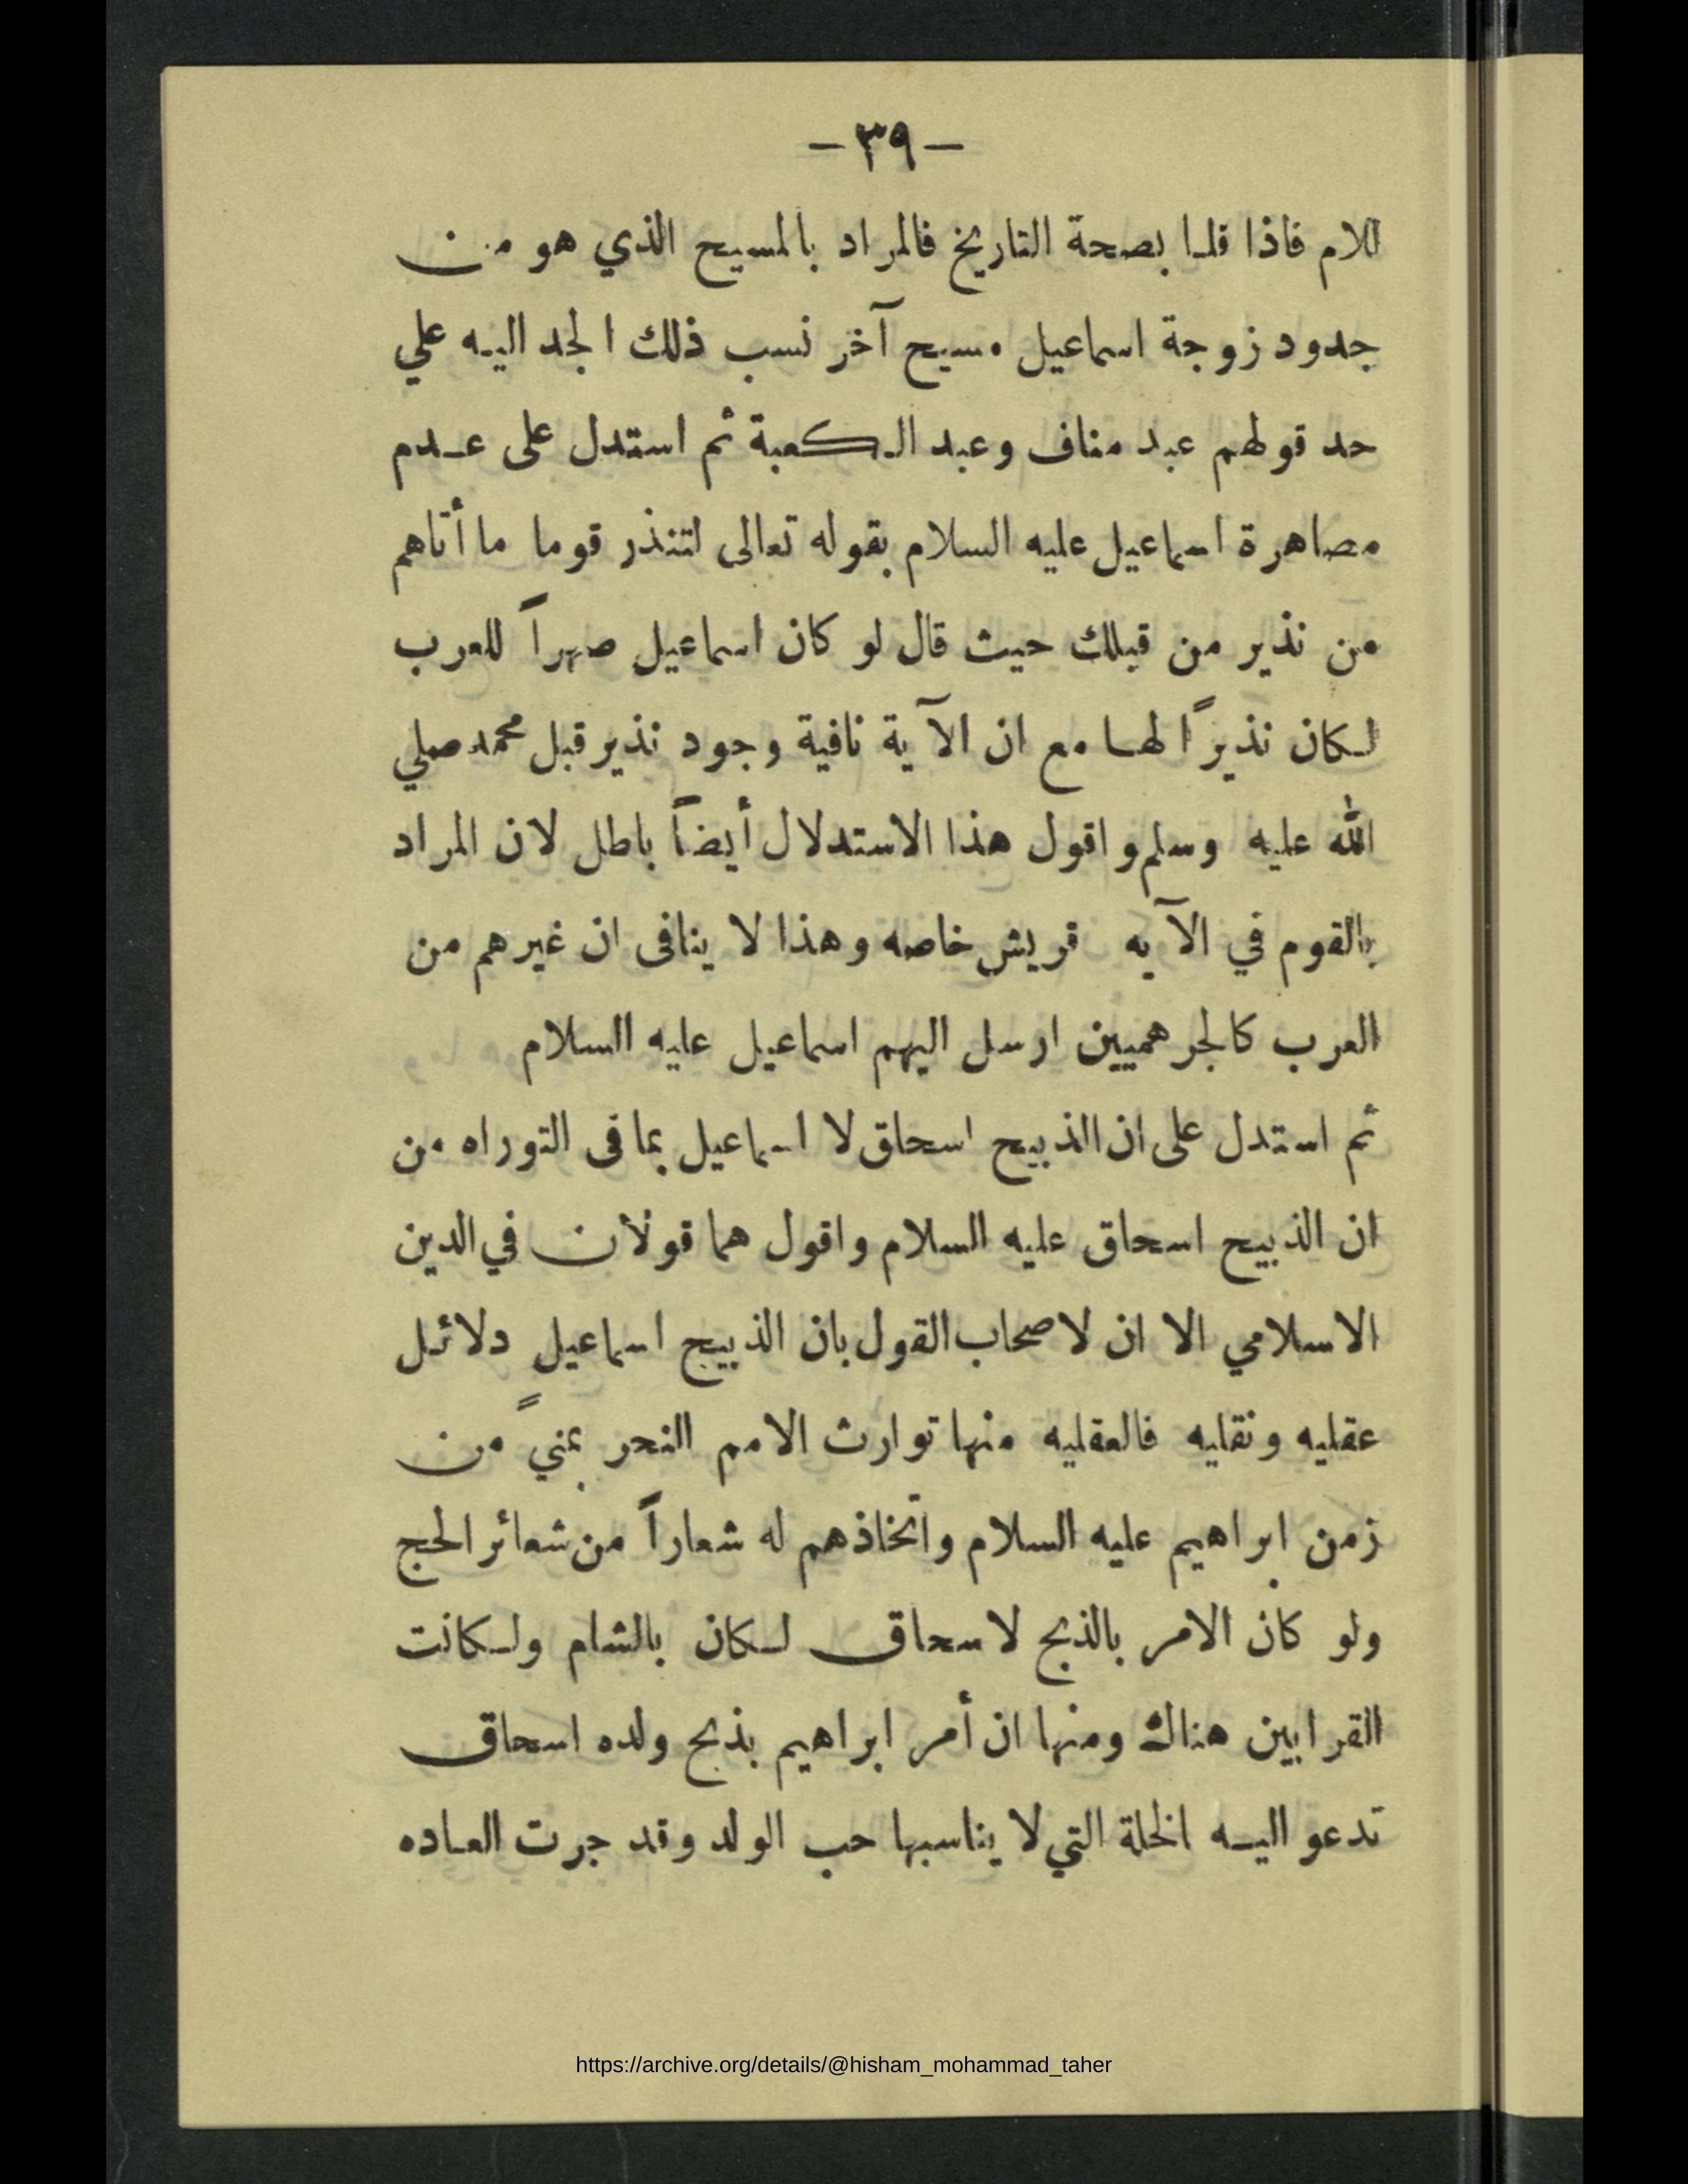 - ٣٩ -
للام فاذا قلنا بصحة التاريخ فالمراد بالمسيح الذي هو من
جدود زوجة اسماعيل مسيح آخر نسب ذلك الجد اليه علي
حد قولهم عبد مناف وعبد الكعبة ثم استدل على عدم
مصاهرة اسماعيل عليه السلام بقوله تعالى لتنذر قوما ما أتاهم
من نذير من قبلك حيث قال لو كان اسماعيل صهراً للعرب
لكان نذيراً لها مع ان الآية نافية وجود نذير قبل محمد صلي
الله عليه وسلم واقول هذا الاستدلال أيضاً باطل لان المراد
بالقوم في الآيه قريش خاصه وهذا لا ينافى ان غيرهم من
العرب كالجرهميين ارسل اليهم اسماعيل عليه السلام
ثم استدل على ان الذبيح اسحاق لا اسماعيل بما فى التوراه من
ان الذبيح اسحاق عليه السلام واقول هما قولان في الدين
الاسلامي الا ان لاصحاب القول بان الذبيح اسماعيل دلائل
عقليه ونقليه فالعقليه منها توارث الامم النحر بمنيً من
زمن ابراهيم عليه السلام واتخاذهم له شعاراً من شعائر الحج
ولو كان الامر بالذبح لاسحاق لكان بالشام ولكانت
القرابين هناك ومنها ان أمر ابراهيم بذبح ولده اسحاق
تدعو اليه الخلة التي لا يناسبها حب الولد وقد جرت العاده
https://archive.org/details/@hisham_mohammad_taher